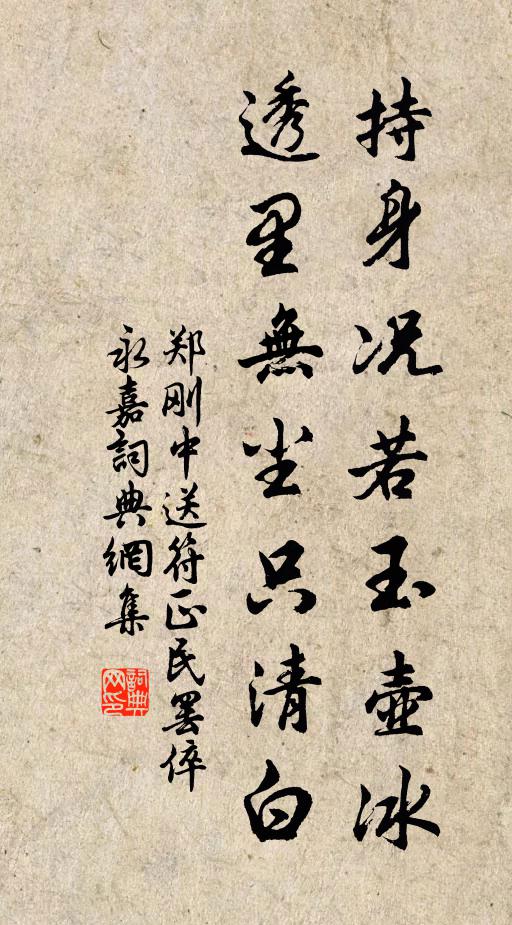 持身况若玉壶冰
透里無尘只清白
郑刚中送符正民罢倅
永嘉詞典網集
詞典
网印